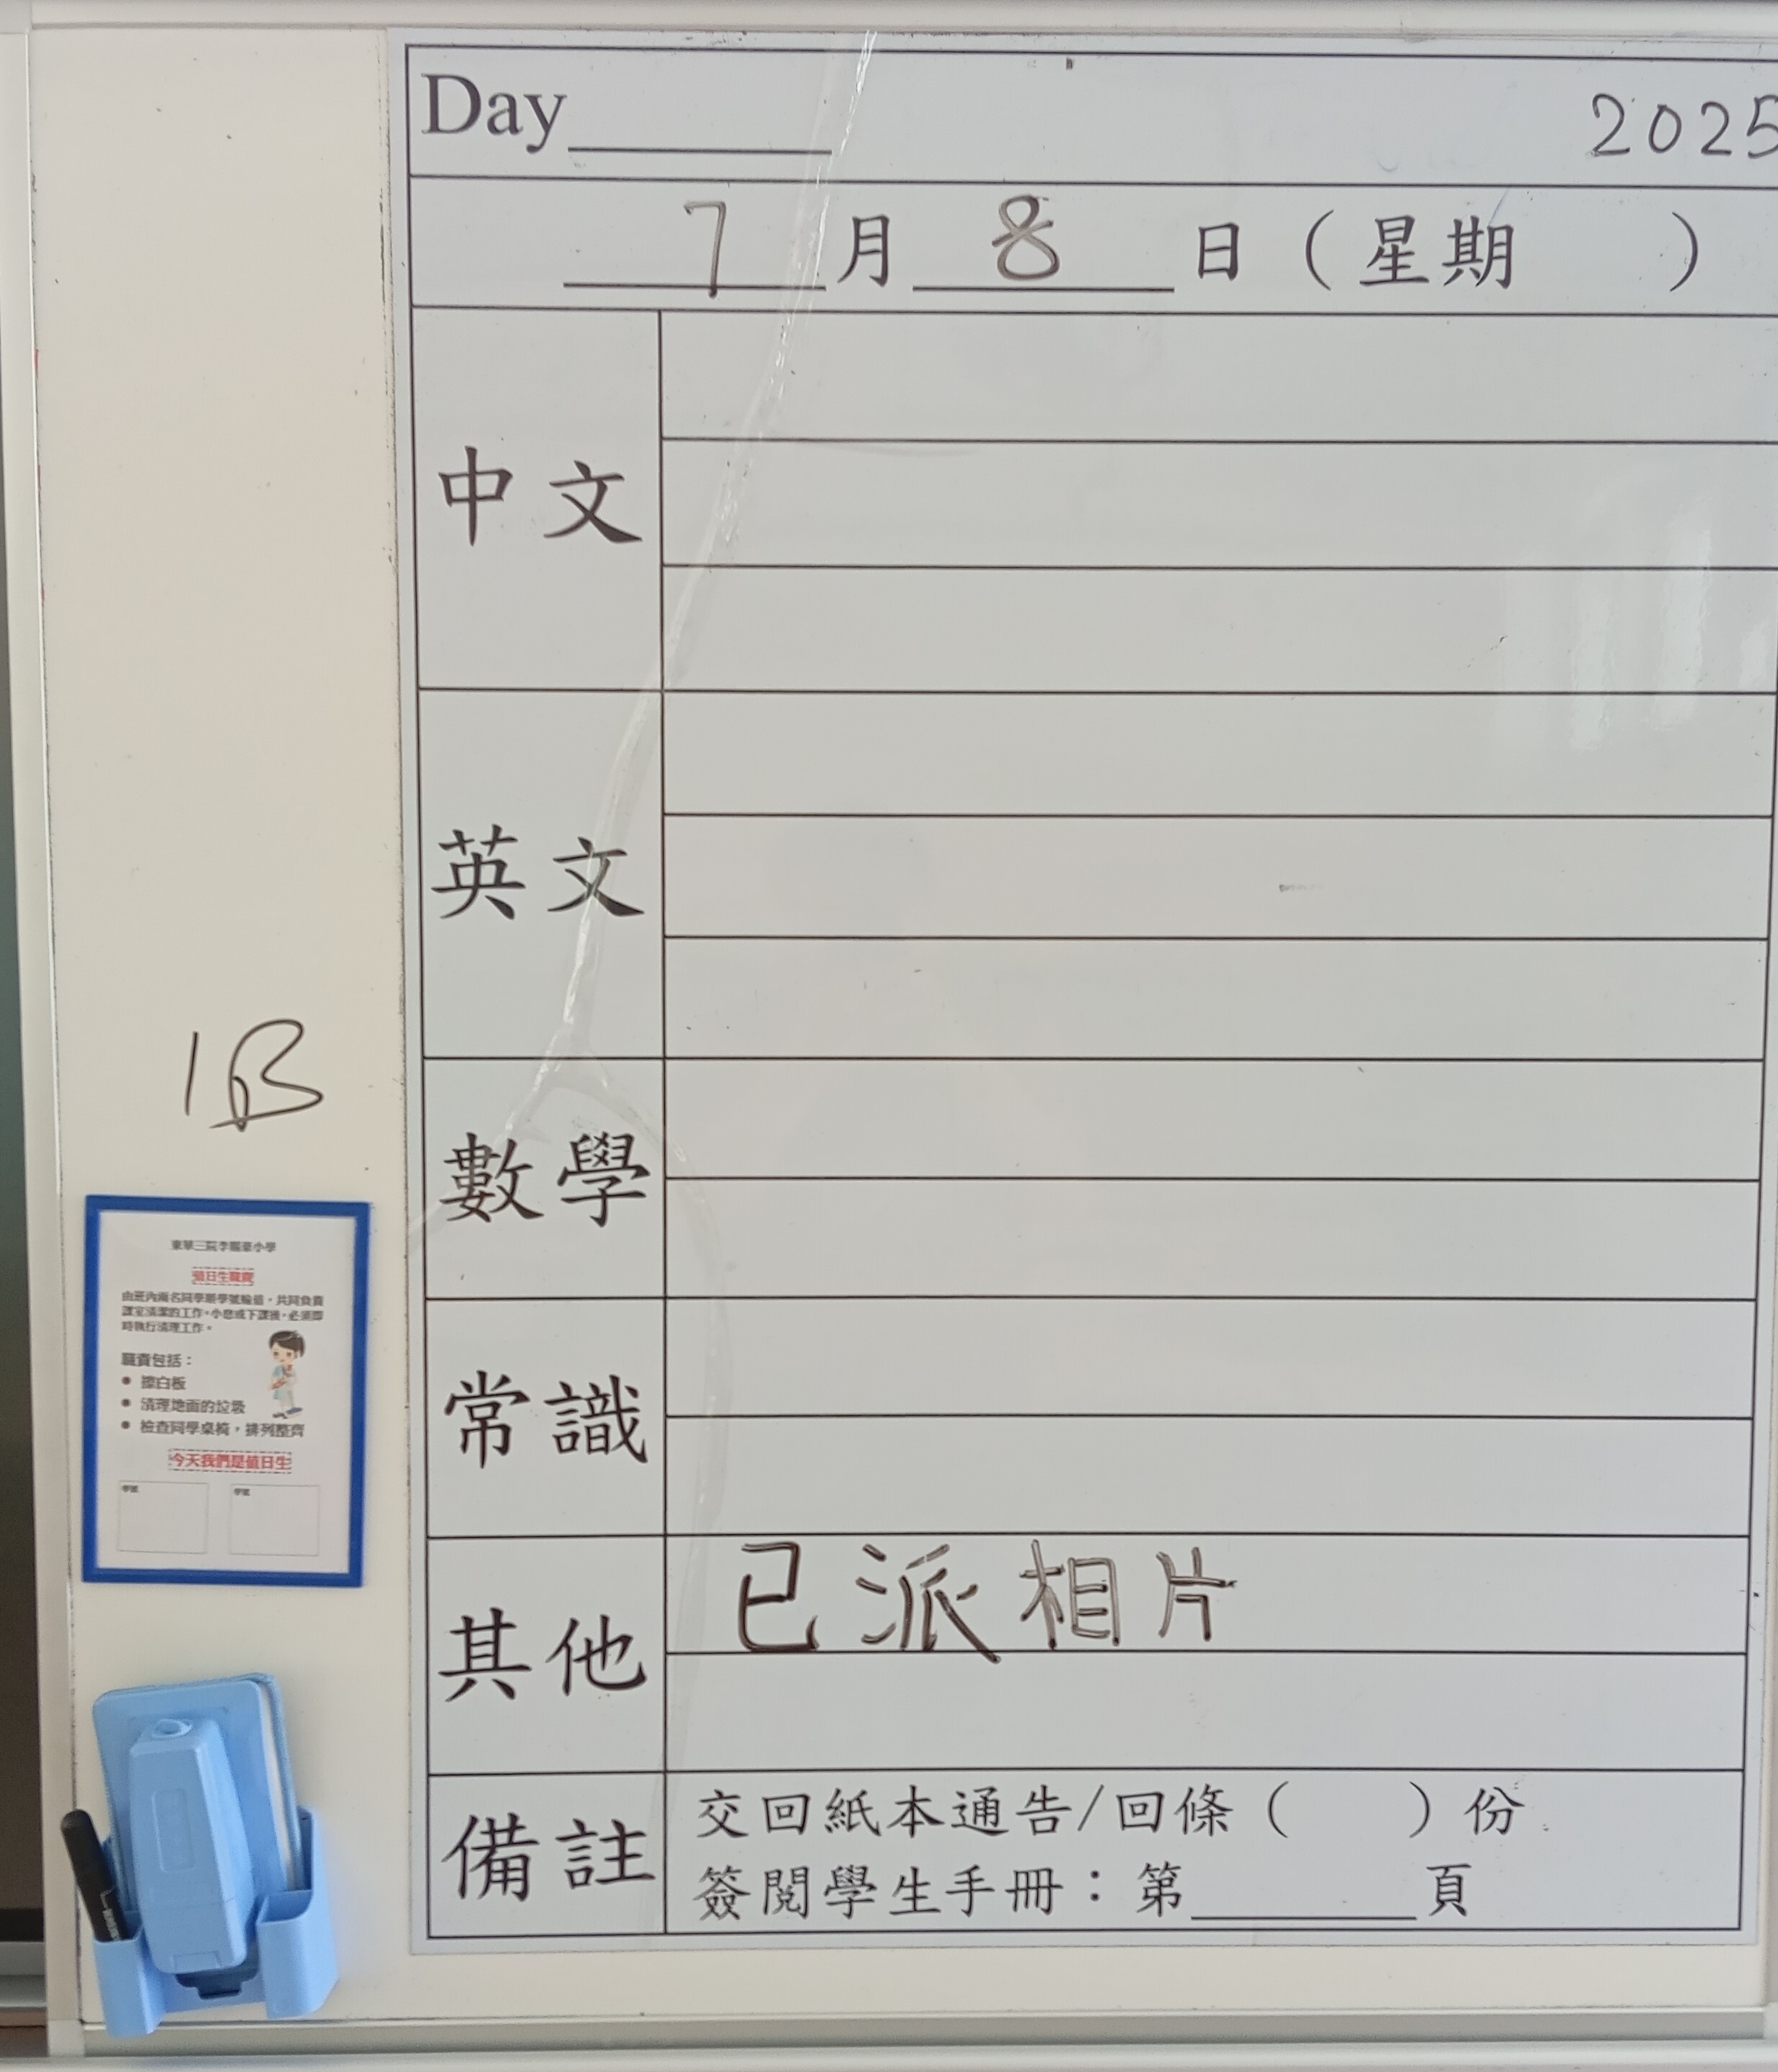 Day______ 2025
7月8日（星期　　）
中文
英文
數學
常識
其他
已派相片
備註
交回紙本通告/回條（　　）份
簽閱學生手冊：第______頁
1B
值日生職責
由班內兩名同學順學號輪值，共同負責
課室清潔的工作。小息或下課後，必須即
時執行清理工作。
職責包括：
● 擦白板
● 清理地面的垃圾
● 檢查同學桌椅，排列整齊
今天我們是值日生